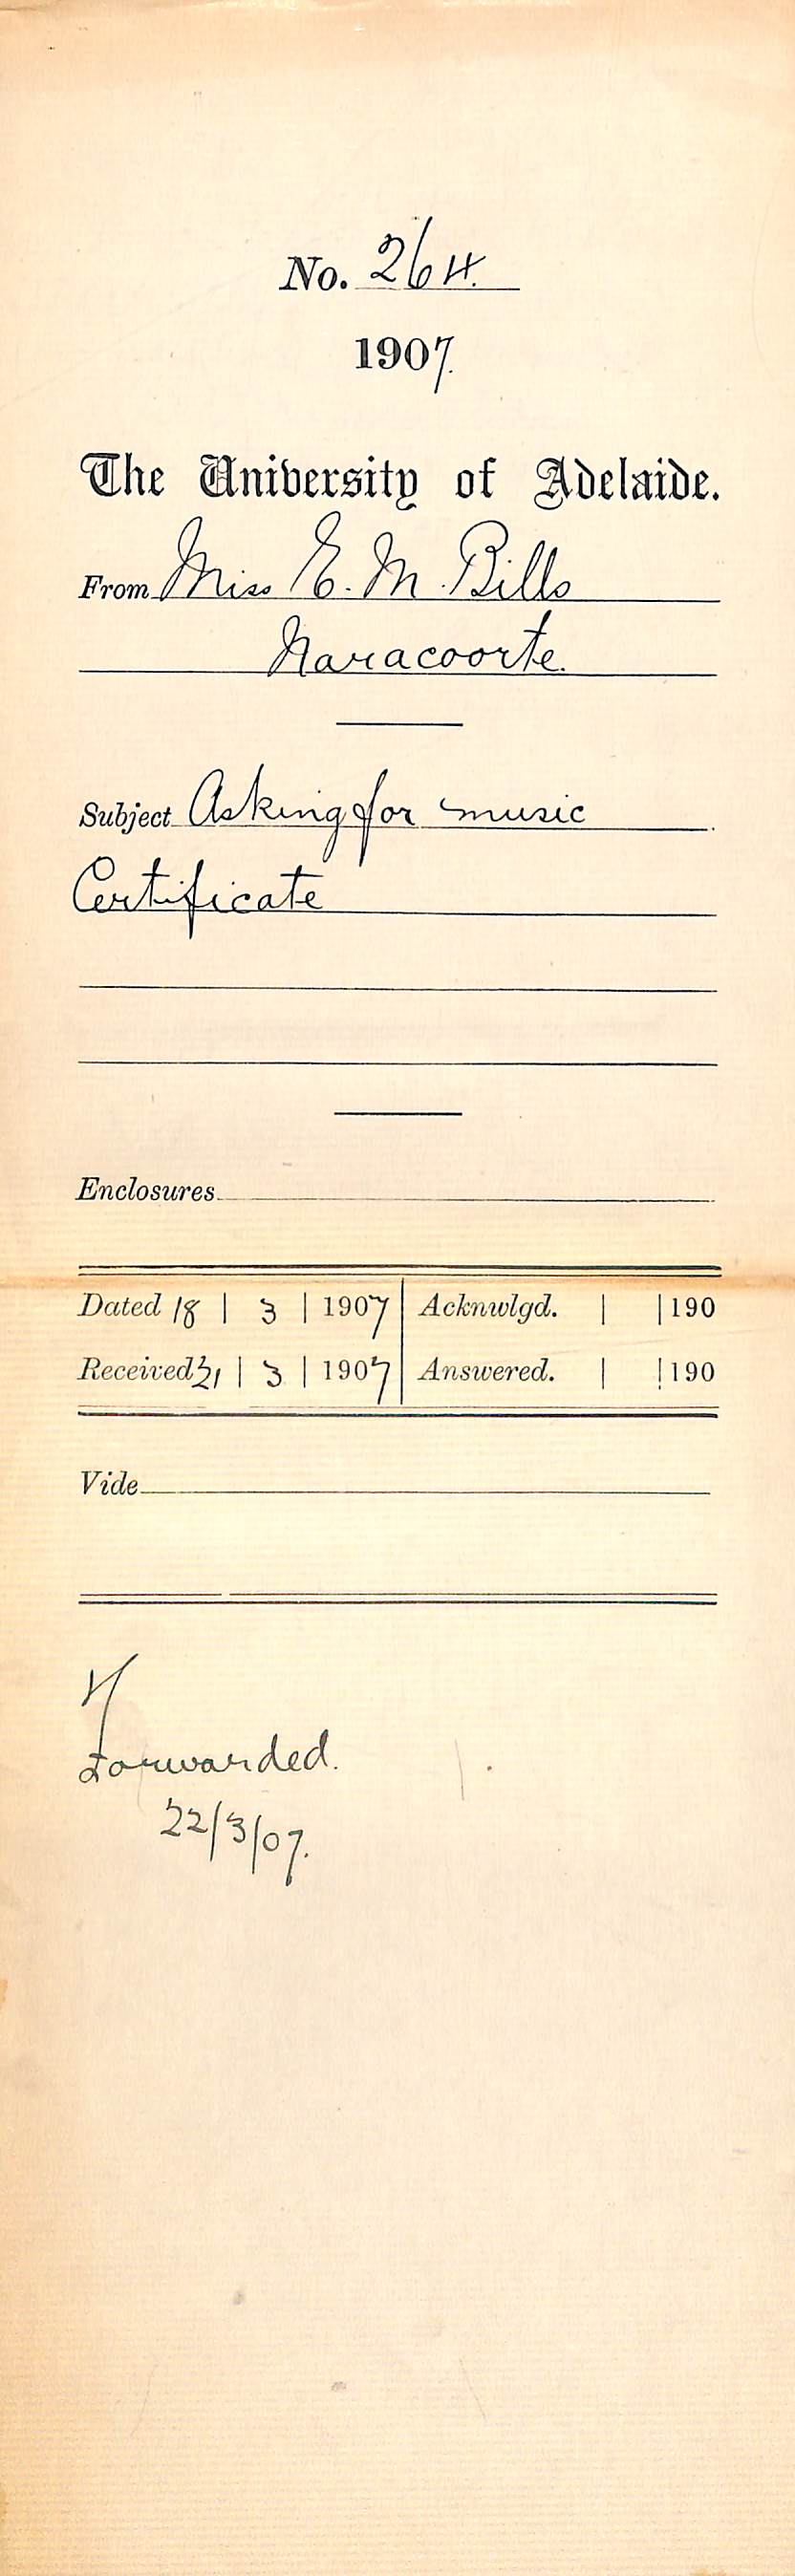 No. 264.
1907.
The University of Adelaide.
From Miss E. M. Bills
Naracoorte.
Subject Asking for music
Certificate
Enclosures
Dated 18 | 3 | 1907 Acknwlgd. | | 190
Received 21 | 3 | 1907 Answered. | | 190
Vide
Forwarded.
22/3/07.